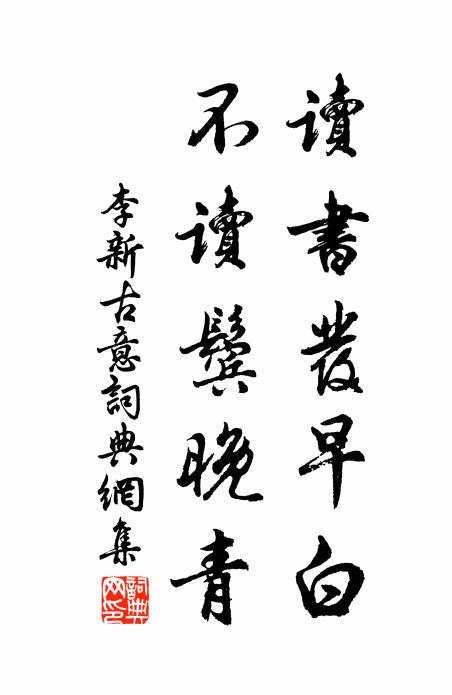 讀書發早白
不讀鬢晚青
李新古意詞典網集
詞典
網印